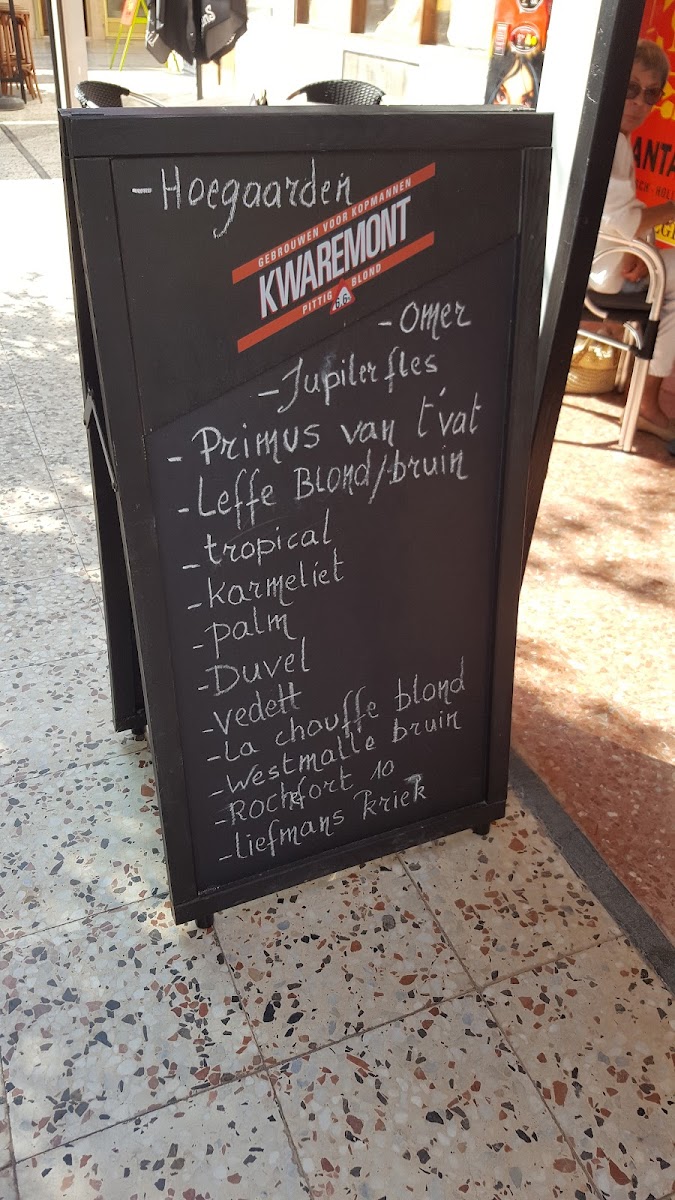 - Hoegaarden
GEBROUWEN VOOR KOPMANNEN
KWAREMONT
PITTIG BLOND
6.6
- Omer
- Jupiler fles
- Primus van t'vat
- Leffe Blond/bruin
- tropical
- Karmeliet
- palm
- Duvel
- vedett
- La chouffe blond
- Westmalle bruin
- Rochefort 10
- liefmans kriek
ANTA